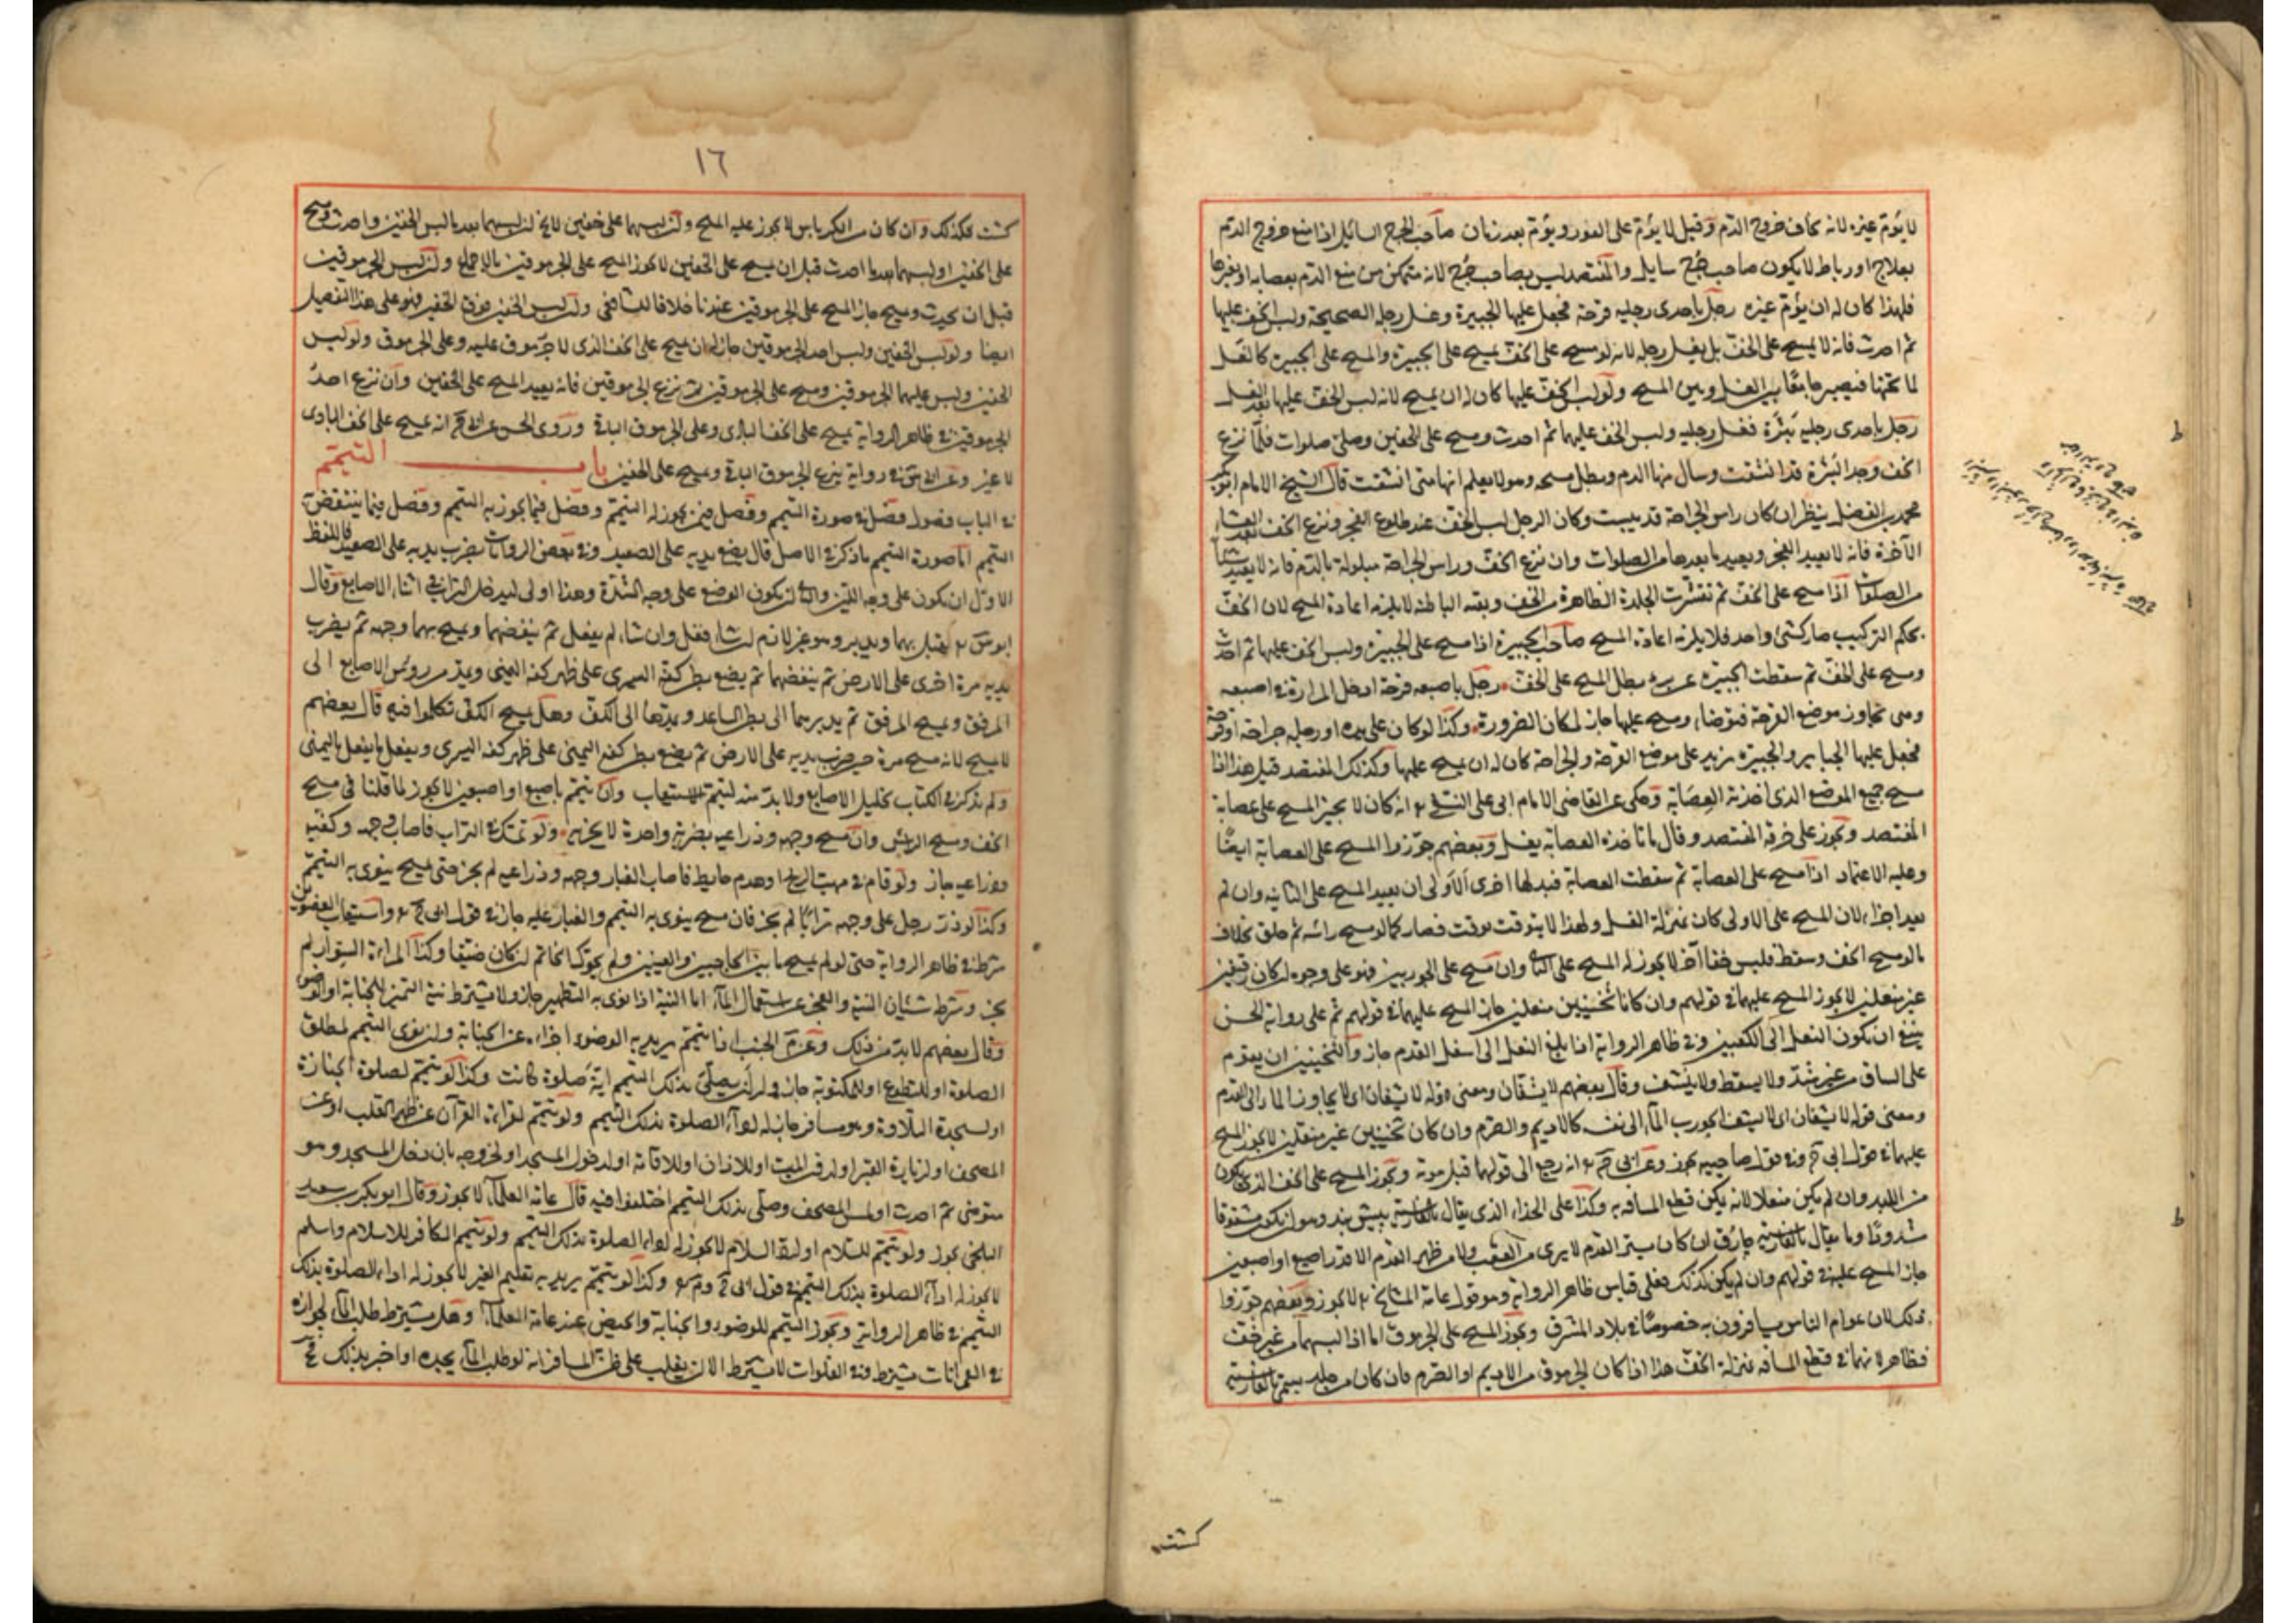 لا يؤم غيره لانه يخاف خروج الدم وقيل لا يؤم على الفور ويؤم بعد زمان صاحب الجرح السائل اذا منع خروج الدم
بعلاج او رباط لا يكون صاحب جرح سايل والمفتصد ليس بصاحب جرح لانه متمكن من منع الدم بعصابة او بغيرها
فلهذا كان له ان يؤم غيره رجل باحدى رجليه قرحة فجعل عليها الجبيرة وغسل رجله الصحيحة ولبس الخف عليها
ثم احدث فانه لا يمسح على الخف بل يغسل رجله لانه لو مسح على الخف يمسح على الجبيرة والمسح على الجبيرة كالغسل
لما تحتها فيصير جامعا بين الغسل وبين المسح ولو لبس الخف عليها كان له ان يمسح لانه لبس الخف عليها بعد الغسل
رجل باحدى رجليه بثرة فغسل رجليه ولبس الخف عليهما ثم احدث ومسح على الخفين وصلى صلوات فلما نزع
الخف وجد البثرة قد انشقت وسال منها الدم وبطل مسحه وهو لا يعلم انها متى انشقت قال الشيخ الامام ابو بكر
محمد بن الفضل ينظر ان كان راس الجراحة قد يبست وكان الرجل لبس الخف عند طلوع الفجر ونزع الخف بعد العشاء
الآخرة فانه لا يعيد الفجر ويعيد ما بعدها من الصلوات وان نزع الخف وراس الجراحة مبلولة بالدم فانه لا يعيد شيئا
من الصلوات اذا مسح على الخف ثم تقشرت الجلدة الظاهرة من الخف وبقيت الباطنة لا يلزمه اعادة المسح لان الخف
بحكم التركيب صار كشئ واحد فلا يلزمه اعادة المسح صاحب الجبيرة اذا مسح على الجبيرة ولبس الخف عليها ثم احدث
ومسح على الخف ثم سقطت الجبيرة عن برء بطل المسح على الخف رجل باصبعه قرحة ادخل المرارة في اصبعه
ومى تجاوز موضع القرحة فتوضاء ومسح عليها جاز لمكان الضرورة وكذا لو كان على يده او رجله جراحة او قرحة
فجعل عليها الجباير والجبيرة تزيد على موضع القرحة والجراحة كان له ان يمسح عليها وكذلك المفتصد قيل هذا اذا
مسح جميع الموضع الذى اخذته العصابة وحكى عن القاضى الامام ابى على النسفي انه كان لا يجيز المسح على عصابة
المفتصد ويجوز على خرقة المفتصد وقال ما تاخذه العصابة يغسل وبعضهم جوزوا المسح على العصابة ايضا
وعليه الاعتماد اذا مسح على العصابة ثم سقطت العصابة فبدلها اخرى الاولى ان يعيد المسح على الثانية وان لم
يعد اجزاه لان المسح على الاولى كان بمنزلة الغسل ولهذا لا يتوقت بوقت فصار كما لو مسح راسه ثم حلق بخلاف
ما لو مسح الخف وسقط فلبس خفا آخر لا يجوز له المسح على الثاني وان مسح على الجوربين فهو على وجوه ان كان رقيقين
غير منعلين لا يجوز المسح عليهما في قولهم وان كانا ثخينين منعلين جاز المسح عليهما في قولهم ثم على رواية الحسن
ينبغي ان يكون النعل الى الكعبين وفي ظاهر الرواية اذا بلغ النعل الى اسفل القدم جاز والثخينين ان يقوم
على الساق من غير شد ولا يسقط ولا ينشف وقال بعضهم لا ينشفان ومعنى قوله لا ينشفان اى لا يجاوز الماء الى القدم
ومعنى قوله لا ينشفان اى لا ينشف الجورب الماء الى نفسه كالاديم والصرم وان كان ثخينين غير منعلين لا يجوز المسح
عليهما في قول ابى ح وفي قول صاحبيه يجوز وعن ابى ح انه رجع الى قولهما قبل موته ويجوز المسح على الخف الذى يكون
من اللبد وان لم يكن منعلا لانه يمكن قطع المسافة به وكذا على الحذاء الذى يقال بالفارسية بيش بند وهو ان يكون مشقوقا
مشدودا وما يقال بالفارسية جارق ان كان يستر القدم لا يرى من العقب ولا من ظهر القدم الا قدر اصبع او اصبعين
جاز المسح عليه في قولهم وان لم يكن كذلك فعلى قياس ظاهر الرواية وهو قول عامة المشايخ لا يجوز وبعضهم جوزوا
ذلك لان عوام الناس يسافرون به خصوصا في بلاد المشرق ويجوز المسح على الجرموق اما اذا لبسهما من غير خف
فظاهر لانهما في قطع المسافة بمنزلة الخف هذا اذا كان الجرموق من الاديم او الصرم فان كان من جلد يسمى بالفارسية
كشت
١٦
كشت فكذلك وان كان من الكرباس لا يجوز عليه المسح وان لبسهما على خفين لا يخ ان لبسهما بعد ما لبس الخفين واحدث ومسح
على الخفين او لبسهما بعد ما احدث قبل ان يمسح على الخفين لا يجوز المسح على الجرموقين بالاجماع وان لبس الجرموقين
قبل ان يحدث ومسح جاز المسح على الجرموقين عندنا خلافا للشافعي وان لبس الخفين فوق الخفين فهو على هذا التفصيل
ايضا ولو لبس الخفين ولبس احد الجرموقين جاز له ان يمسح على الخف الذى لا جرموق عليه وعلى الجرموق ولو لبس
الخفين ولبس عليهما الجرموقين ومسح على الجرموقين ثم نزع الجرموقين فانه يعيد المسح على الخفين وان نزع احد
الجرموقين في ظاهر الرواية يمسح على الخف البادى وعلى الجرموق الباقى وروى الحسن عن ابى ح انه يمسح على الخف البادى
لا غير وعن ابى س في رواية ينزع الجرموق الباقى ويمسح على الخفين باب التيمم
في الباب فصول فصل في صورة التيمم وفصل فيمن يجوز له التيمم وفصل فيما يجوز به التيمم وفصل فيما ينتقض به
التيمم اما صورة التيمم ما ذكر في الاصل قال يضع يديه على الصعيد وفي بعض الروايات يضرب يديه على الصعيد فاللفظ
الاول ان يكون على وجه اللين والثاني ان يكون الوضع على وجه الشدة وهذا اولى ليدخل التراب في اثناء الاصابع وقال
ابو س يقبل بهما ويدبر وهو غير لازم ان شاء فعل وان شاء لم يفعل ثم ينفضهما ويمسح بهما وجهه ثم يضرب
يديه مرة اخرى على الارض ثم ينفضهما ثم يضع بطن كفه اليسرى على ظهر كفه اليمنى ويمد من رؤس الاصابع الى
المرفق ويمسح المرفق ثم يديرهما الى بطن الساعد ويمدها الى الكف وهل يمسح الكف تكلموا فيه قال بعضهم
لا يمسح لانه مسح مرة حين ضرب يديه على الارض ثم يضع بطن كفه اليمنى على ظهر كفه اليسرى ويفعل ما يفعل باليمنى
ولم يذكر في الكتاب تخليل الاصابع ولا بد منه ليتم الاستيعاب وان تيمم باصبع او اصبعين لا يجوز لما قلنا في مسح
الخف ومسح الراس وان مسح وجهه وذراعيه بضربة واحدة لا يجزيه ولو تمعك في التراب فاصاب وجهه وكفيه
وذراعيه جاز ولو قام في مهب الريح او هدم حايط فاصاب الغبار وجهه وذراعيه لم يجز حتى يمسح ينوى به التيمم
وكذا لو ذر رجل على وجهه ترابا لم يجز فان مسح ينوى به التيمم والغبار عليه جاز في قول ابى ح واستيعاب العضوين
شرط في ظاهر الرواية حتى لو لم يمسح ما بين الحاجبين والعينين ولم يحرك الخاتم ان كان ضيقا وكذا المراة السوار لم
يجز وشرط شئان النية والعجز عن استعمال الماء اما النية اذا نوى به التطهير جاز ولا يشترط نية التميز للجنابة او الوضوء
وقال بعضهم لا بد من ذلك وعن م الجنب اذا تيمم يريد به الوضوء اجزاه عن الجنابة وان نوى التيمم لمطلق
الصلوة او للتطوع او للمكتوبة جاز له ان يصلى بذلك التيمم اية صلوة كانت وكذا لو تيمم لصلوة الجنازة
او لسجدة التلاوة وهو مسافر جاز له اداء الصلوة بذلك التيمم ولو تيمم لقراءة القرآن عن ظهر القلب او عن
المصحف او لزيارة القبر او لدفن الميت او للاذان او للاقامة او لدخول المسجد او لخروجه بان دخل المسجد وهو
متوضئ ثم احدث او لمس المصحف وصلى بذلك التيمم اختلفوا فيه قال عامة العلماء لا يجوز وقال ابو بكر بن سعيد
البلخى يجوز ولو تيمم للسلام او لرد السلام لا يجوز له اداء الصلوة بذلك التيمم ولو تيمم الكافر للاسلام واسلم
لا يجوز له اداء الصلوة بذلك التيمم في قول ابى ح وم وكذا لو تيمم يريد به تعليم الغير لا يجوز له اداء الصلوة بذلك
التيمم في ظاهر الرواية ويجوز التيمم للوضوء والجنابة والحيض عند عامة العلماء وهل يشترط طلب الماء لجوازه
في العمرانات يشترط وفي الفلوات لا يشترط الا ان يغلب على ظن المسافر انه لو طلب الماء يجده او اخبر بذلك